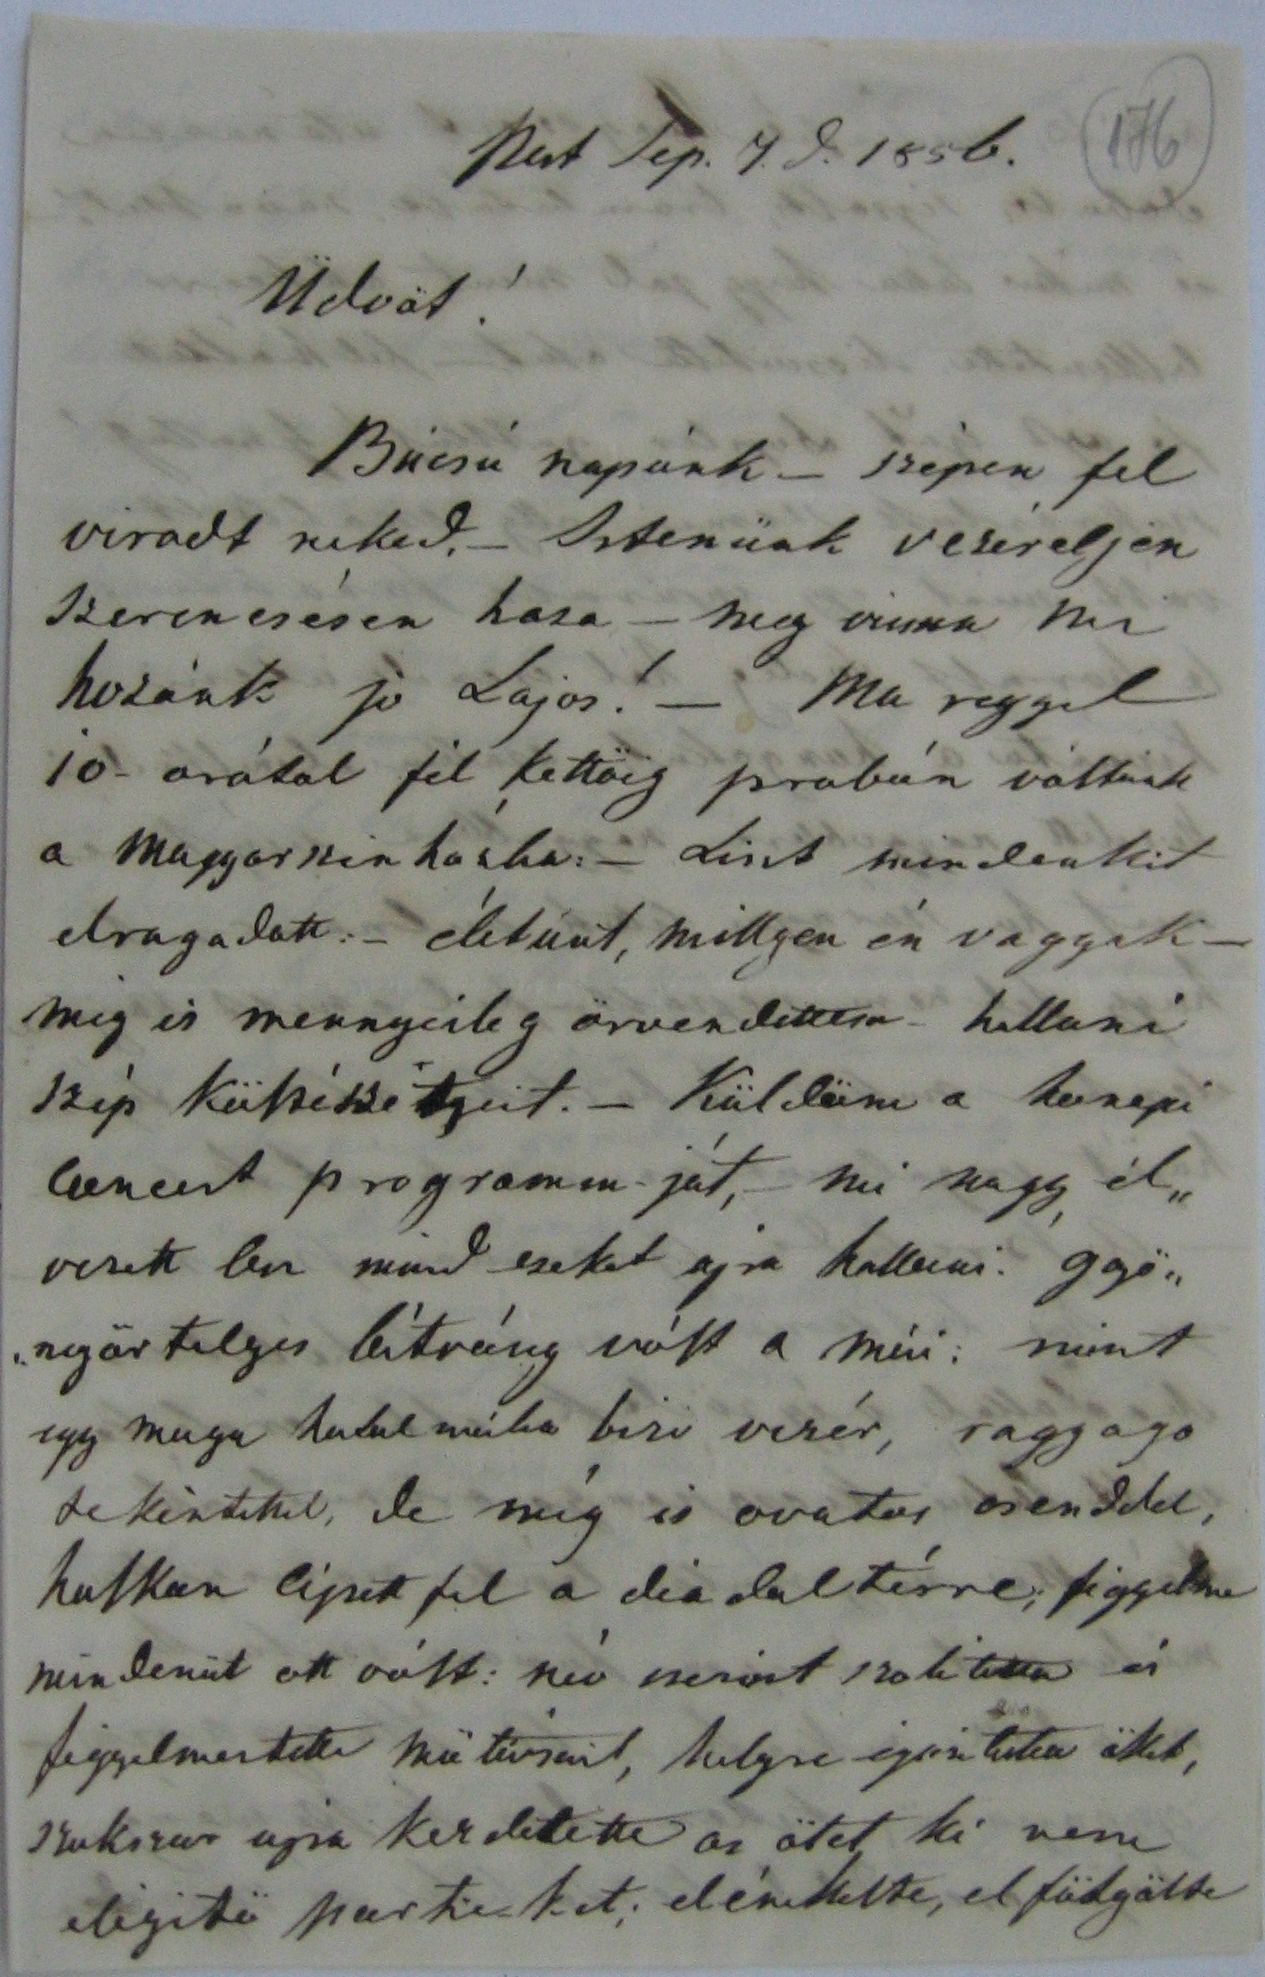 Pest Sep. 7. d. 1856.
176
Üdvöt!
Búcsú napúnk – szépen fel
viradt neked. – Istenünk vezéreljen
szerencsésen haza – meg vissza mi
hozánk jo Lajos! – Ma reggel
10 orátol fél kettöig probán vóltunk
a Magyar szin házba: – Liszt mindenkit
elragadott. – életúnt, millyen én vagyok –
még is mennyeileg örvendettem hallani
szép költészétgeit. – Küldöm a honapi
Concert programm-ját, – mi nagy él„
vezett lesz mind ezeket ujra hallani. gyö„
„nyör telyes látvány vólt a mai: mint
egy maga hatalmába bizo vezér, ragyogo
tekintettel, de még is ovatos csenddel,
halkan lépett fel a diadal térre; figyelme
mindenüt ott vólt: név szerint szolitotta és
figyelmeztette mü társait, helyre igazitotta öket,
szokszor ujra kezdetette az ötet ki nem
elégitö partie-ket; elénekelte, el fütyölte